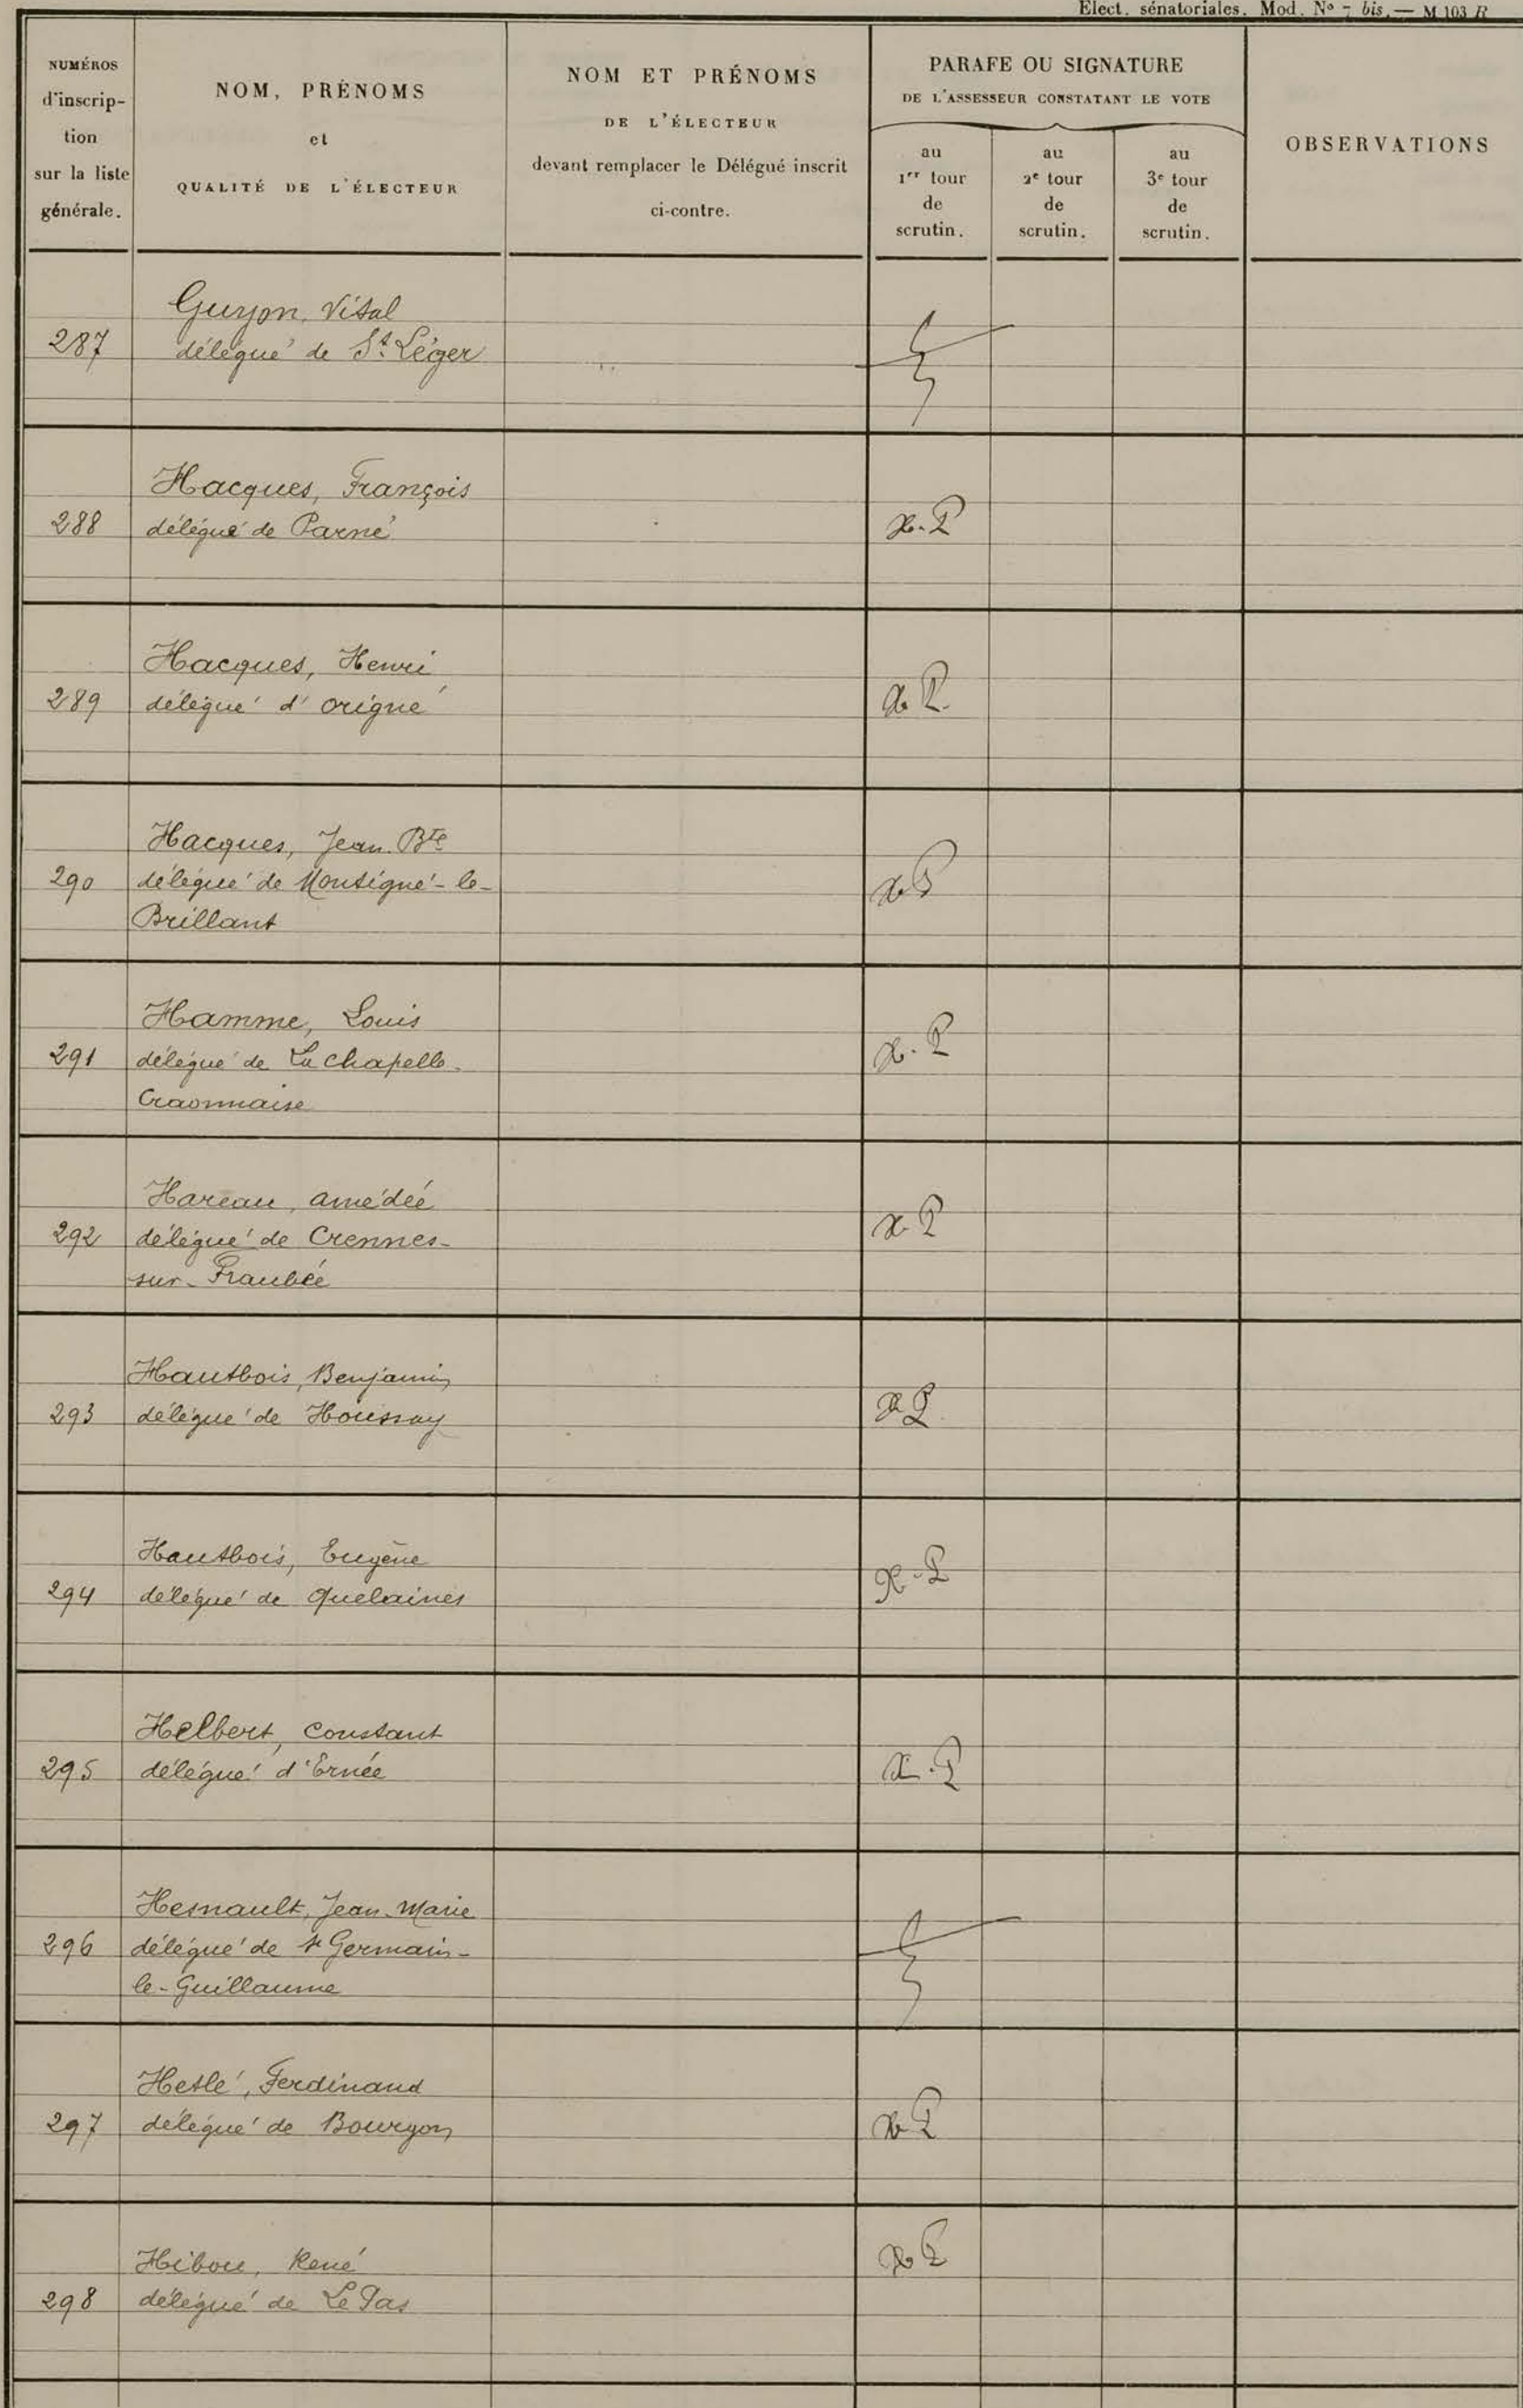 Elect. sénatoriales. Mod. Nº 7 bis. — M 103 R
NUMÉROS
d'inscrip-
tion
sur la liste
générale.
NOM, PRÉNOMS
et
QUALITÉ DE L'ÉLECTEUR
NOM ET PRÉNOMS
DE L'ÉLECTEUR
devant remplacer le Délégué inscrit
ci-contre.
PARAFE OU SIGNATURE
DE L'ASSESSEUR CONSTATANT LE VOTE
au
1er tour
de
scrutin.
au
2e tour
de
scrutin.
au
3e tour
de
scrutin.
OBSERVATIONS
Guyon, Vital
287 délégué de St. Léger
Hacques, François
288 délégué de Parné
Hacques, Henri
289 délégué d'origné
Hacques, Jean Bte
290 délégué de Montigné-le-
Brillant
Hamme, Louis
291 délégué de La Chapelle-
Craonnaise
Hareau, amédée
292 délégué de Crennes-
sur-Fraubée
Hautbois, Benjamin
293 délégué de Houssay
Hautbois, Eugène
294 délégué de Quelaines
Helbert, Constant
295 délégué d'Ernée
Hesnault, Jean-Marie
296 délégué de St Germain-
le-Guillaume
Heslé, Ferdinand
297 délégué de Bourgon
Hibou, René
298 délégué de Le Pas